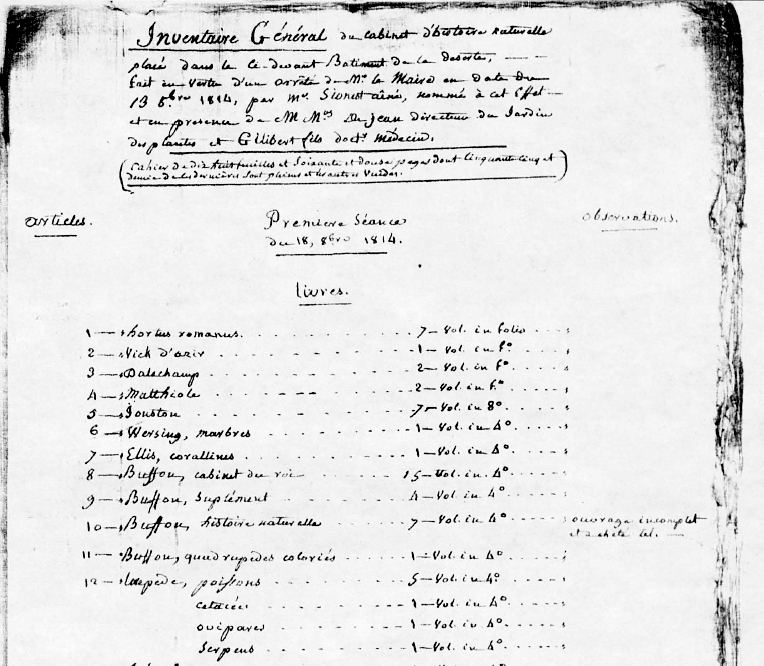 Inventaire Général du cabinet d'histoire naturelle
placé dans le ci-devant Batiment de la Deserte,
fait en vertu d'un arrêté de Mr. le Maire en date du
13 8bre 1814, par Mr. Sionest aîné, nommé à cet Effet
et en presence de MMrs Dejean directeur du Jardin
des plantes et Gilibert fils doctr. médecin.
(Cahier de dix huit feuilles et Soixante et douse pages dont Cinquante Cinq et
demie de les dernières sont pleines et les autres Vuides.)
articles.
Premiere Séance
du 18, 8bre 1814.
observations.
livres.
1 — hortus romanus. 7 — Vol. in folio
2 — Vick d'azir 1 — Vol. in f°
3 — Dalechamp 2 — Vol. in f°
4 — Matthiole 2 — Vol. in f°
5 — Jonston 7 — Vol. in 8°
6 — Wersing, marbres 1 — Vol. in 4°
7 — Ellis, corallines 1 — Vol. in 4°
8 — Buffon, cabinet du roi 15 — Vol. in 4°
9 — Buffon, Suplément 4 — Vol. in 4°
10 — Buffon, histoire naturelle 7 — Vol. in 4° ouvrage incomplet
et acheté tel.
11 — Buffon, quadrupèdes coloriés 1 — Vol. in 4°
12 — Lacepède, poissons 5 — Vol. in 4°
cetacées 1 — Vol. in 4°
ovipares 1 — Vol. in 4°
Serpens 1 — Vol. in 4°